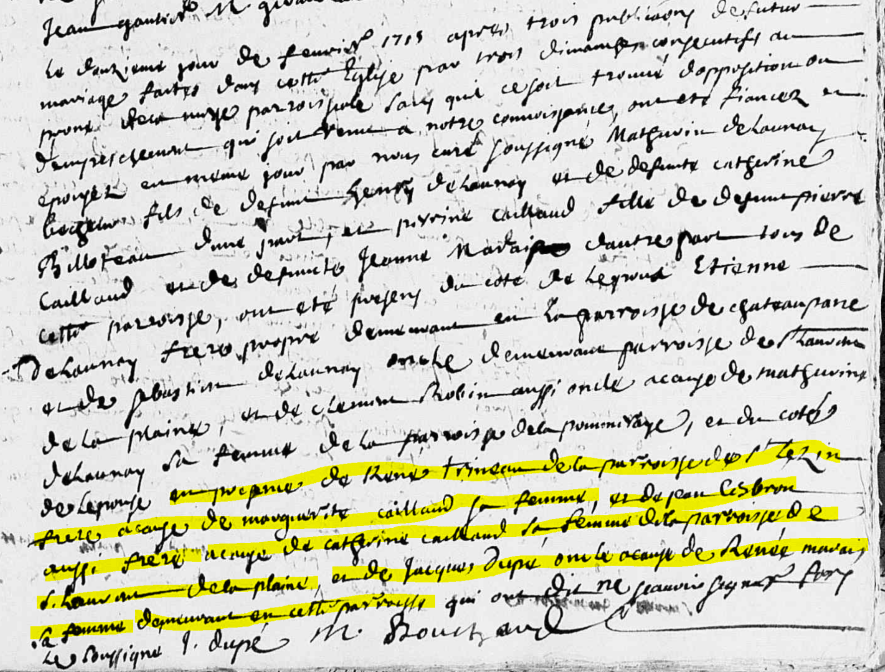 Jean gautier M.
Le douzieme jour de feuvrier 1715 apres trois publications de futur
mariage faites dans cette Eglise par trois dimanches consecutifs au
prone de la messe parroissiale sans quil ce soit trouvé dopposition ou
dempreschement qui soit venu a notre connoissance, ont eté fiancez et
epousez en meme jour par nous curé soussigné Mathurin delaunay
fils de defunt henry delaunay et de defunte catherine
Billoteau dune part, et perrine cailland fille de defunt pierre
Cailland et de defuncte Jeanne Marais dautre part tous de
cette parroisse, ont eté presens du coté de Lepoux Etienne
Delaunay frere propre demeurant en la parroisse de chateaupane
et de sebastien delaunay oncle demeurant parroisse de st Laurent
de la plaine, et de clement Robin aussi oncle acause de mathurine
delaunay sa femme de la parroisse de la pommeraye, et du coté
de Lepouse en presence de René Trineau de la parroisse de st Lezin
frere acause de marguerite cailland sa femme, et de jean Lebron
aussi frere acause de catherine cailland sa femme de la parroisse de
st Laurent de la plaine, et de Jacques Dupé oncle acause de Renée marais
sa femme demeurant en cette parroisse qui ont dit ne scavoir signer fors
Le Bussigné J. dupé M. Bouchard